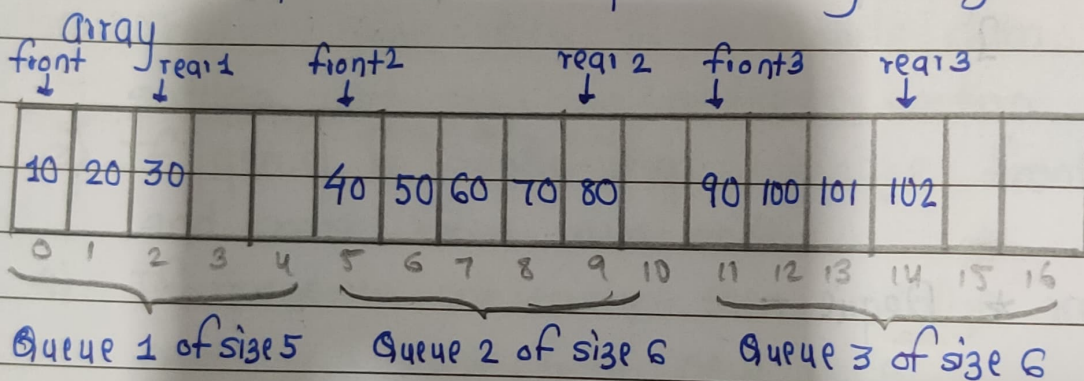 array
front rear1 front2 rear 2 front3 rear3
10 20 30 40 50 60 70 80 90 100 101 102
0 1 2 3 4 5 6 7 8 9 10 11 12 13 14 15 16
Queue 1 of size 5 Queue 2 of size 6 Queue 3 of size 6